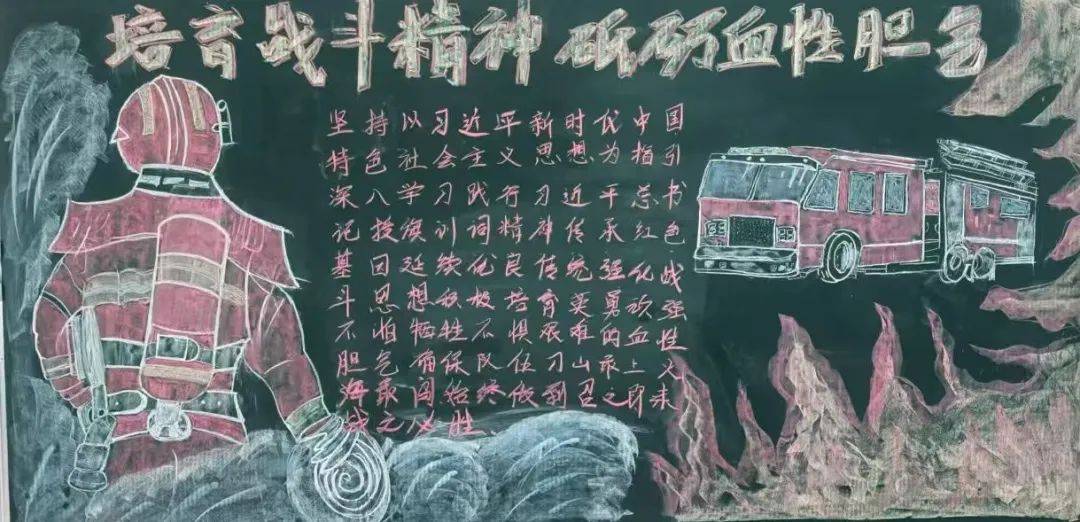 培育战斗精神 砥砺血性胆气
坚持以习近平新时代中国
特色社会主义思想为指引
深入学习践行习近平总书
记授旗训词精神传承红色
基因延续优良传统强化战
斗思想积极培育英勇顽强
不怕牺牲不惧艰难的血性
胆气确保队伍刀山敢上火
海敢闯始终做到召之即来
战之必胜